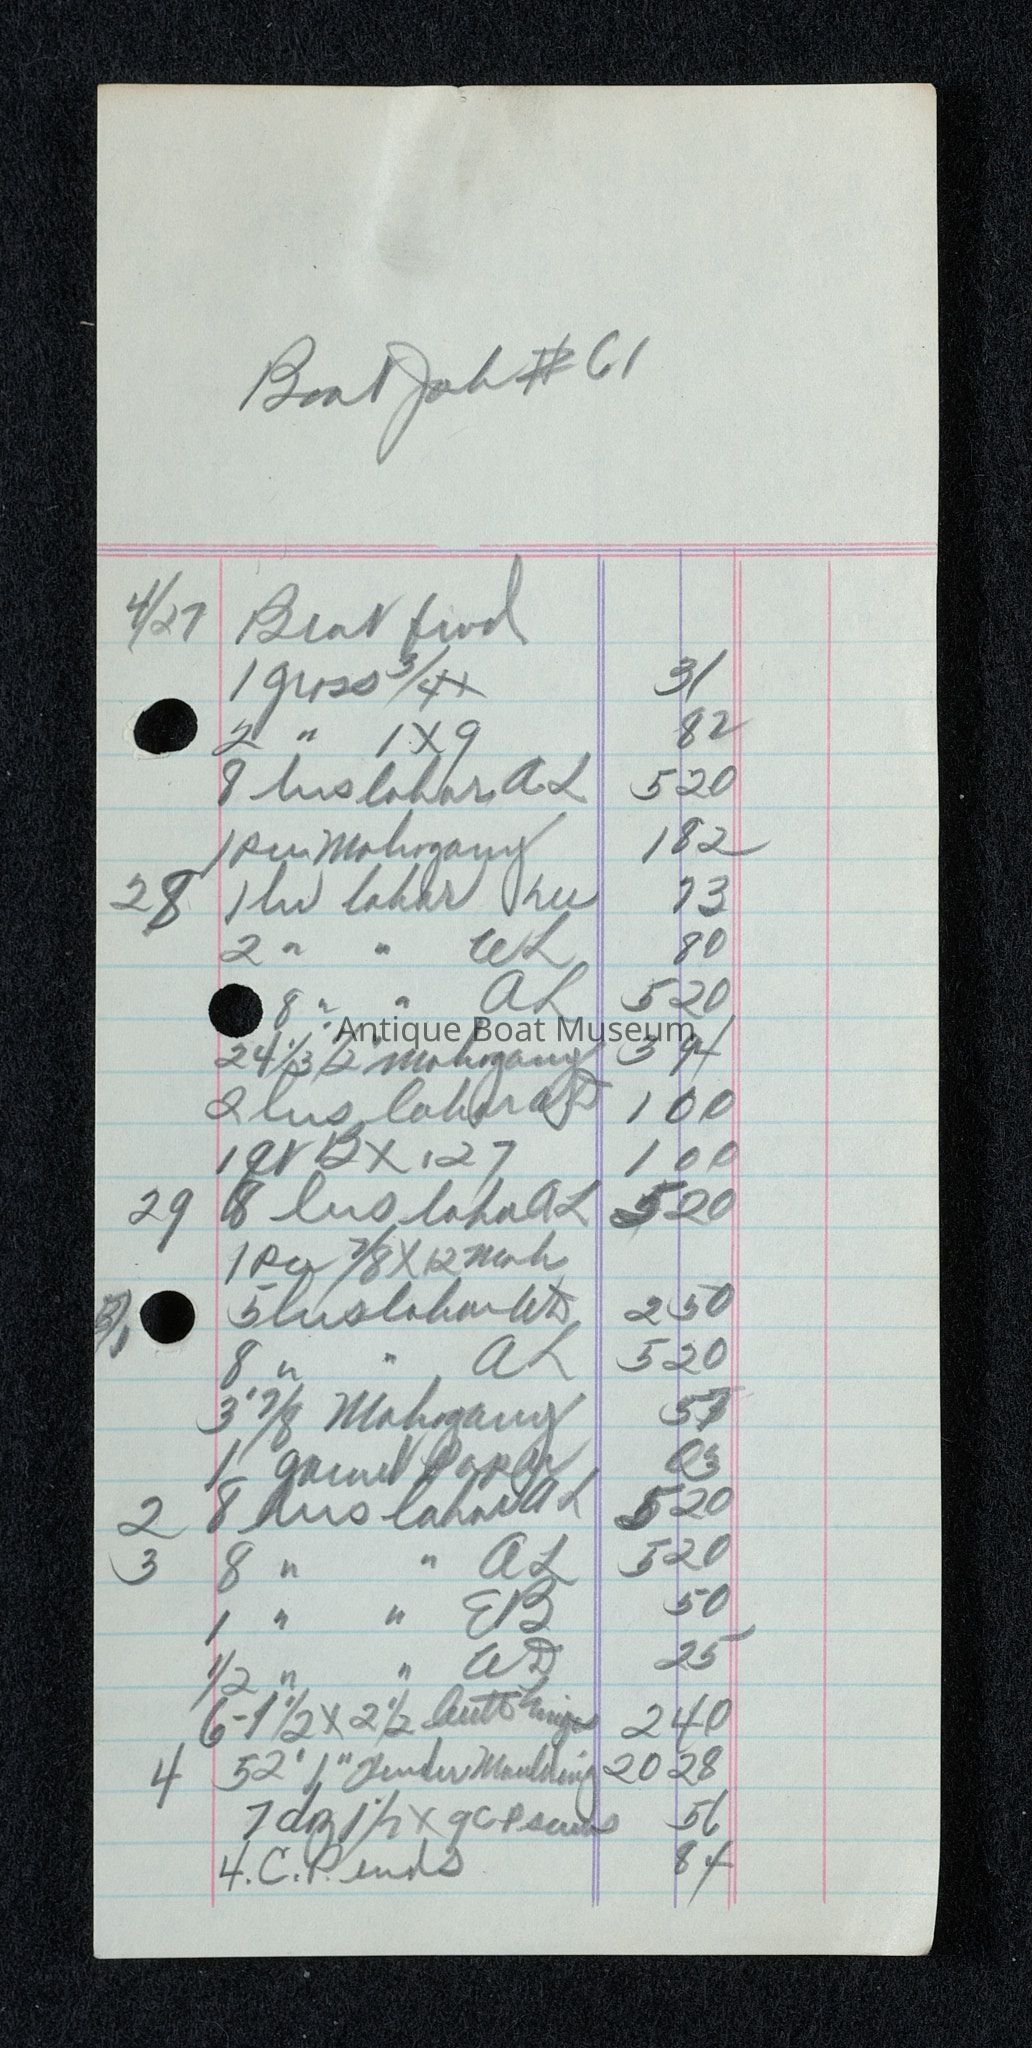 Boat Job # 61
4/27 Boat fwd
1 gross 3/4 x 31
2 " 1 X 9 82
8 hrs labor AL 5 20
1 pc Mahogany 1 82
28 1 hr labor 73
2 " " WL 80
8 " " AL 5 20
Antique Boat Museum
24' 1/2" Mahogany 3 94
2 hrs labor WD 1 00
1 qt B X 127 1 00
29 8 hrs labor AL 5 20
1 pc 7/8 X 12 Mah
5/1 5 hrs labor WD 2 50
8 " " AL 5 20
3' 7/8 Mahogany 57
1 garnet paper 03
2 8 hrs labor AL 5 20
3 8 " " AL 5 20
1 " " EB 50
1/2 " " WD 25
6 - 1 1/2 X 2 1/2 butt hinges 2 40
4 52' 1" Fender Moulding 20 28
7 doz 1 1/2 X 9 C P screws 56
4 C.P. ends 84